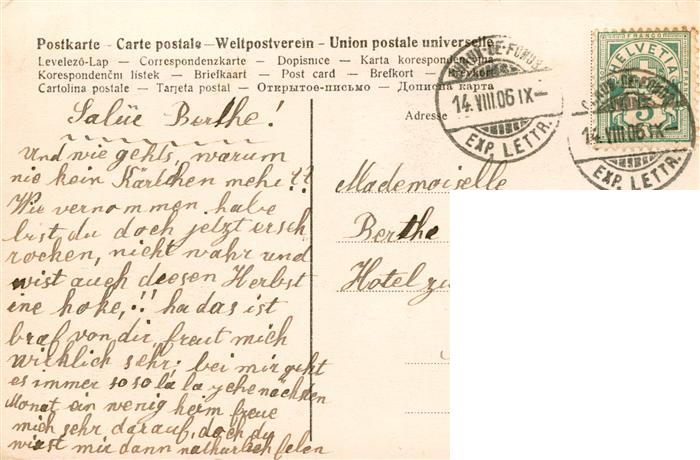 Postkarte - Carte postale - Weltpostverein - Union postale universelle
Levelező-Lap — Correspondenzkarte — Dopisnice — Karta korespondencyjna
Korespondenční lístek — Briefkaart — Post card — Brefkort — Brevkort
Cartolina postale — Tarjeta postal — Открытое-письмо — Дописна карта
HELVETIA
FRANCO
5
CHAUX-DE-FONDS
14.VIII.06 IX—
EXP. LETTR.
CHAUX-DE-FONDS
14.VIII.06 IX—
EXP. LETTR.
Adresse
Salüe Berthe!
Und wie gehts, warum
nie kein Kärtchen mehr??
Wie vernommen habe
bist du doch jetzt ersch
rocken, nicht wahr und
wist auch diesen Herbst
ine hoke,!! ha das ist
braf von dir, freut mich
wirklich sehr; bei mir geht
es immer so so lá la gehe nächsten
Monat ein wenig heim freue
mich sehr darauf, doch du
wirst mir dann natürlich felen
Mademoiselle
Berthe
Hotel zu